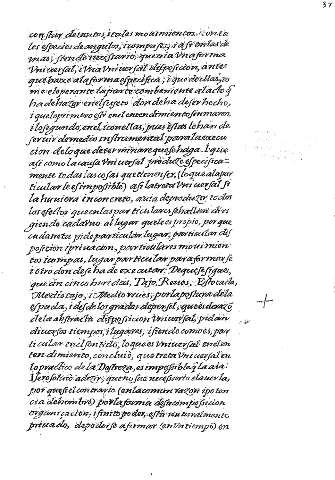 37
constar de tantos, i tales movimientos, con ta
les especies de angulos, i composes; i a se en las de
mas; siendo necessario, queria Vna forma
Vniversal, i Vna Vniversal disposicion, ante
que baxe a la forma especifica; i que de
me el operante la parte combeniente al acto q
ha de hazer en el sugeto donde ha de ser hecho,
i qual primero esté en el entendimiento sumaria
i lo segundo, en el, i con ellas, pues estas le han de
servir de medio instrumental para la execu
cion de lo que determinare que se haga. I que
asi como la causa Vniversal produze especifica-
mente todas las cosas que tienen ser, (lo que a la par
ticular le es imposible) asi la treta Vniversal si
la huviera in concreto, avia de produzir todos
los efetos que en las particulares se hallen diri
giendo cada vno al lugar que le es propio, por que
cada treta pide particular lugar, particular dis
posicion i privacion, particulares movimien
tos i tiempos, lugar particular para formarse
i otro donde se ha de executar. De que se sigue,
que en cinco heridas, Tajo, Reves, Estocada,
Medio tajo, i Medio reves; por la postura de la
espada, i desde los grados de perfil, que es el brazo
de la abstracta disposicion Vniversal, pidan
diversos tiempos, i lugares, i siendo como es, par
ticular en el sentido, lo que es Vniversal en el en
tendimiento, concluió, que treta Vniversal en
lo practico de la Destreza, es imposible q la aia:
I es solo de dezir, que no fue necessario el averla,
por que el contrario (en la comun razon i poten
cia de hombre) por la forma de su composicion
organizacion, i finito poder, está naturalmente
privado, de poderse afirmar (en Vn tiempo) en